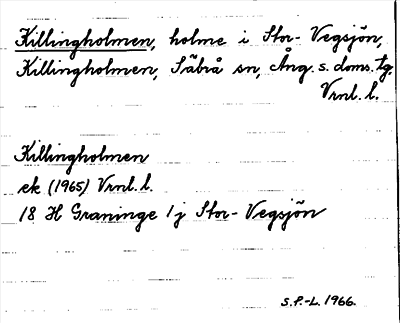 Killingholmen, holme i Stor-Vegsjön,
Killingholmen, Säbrå sn, Ång. s. doms. tg.
Vrnl. l.
Killingholmen
ek (1965) Vrnl. l.
18 H Graninge 1j Stor-Vegsjön
S.P.-L. 1966.